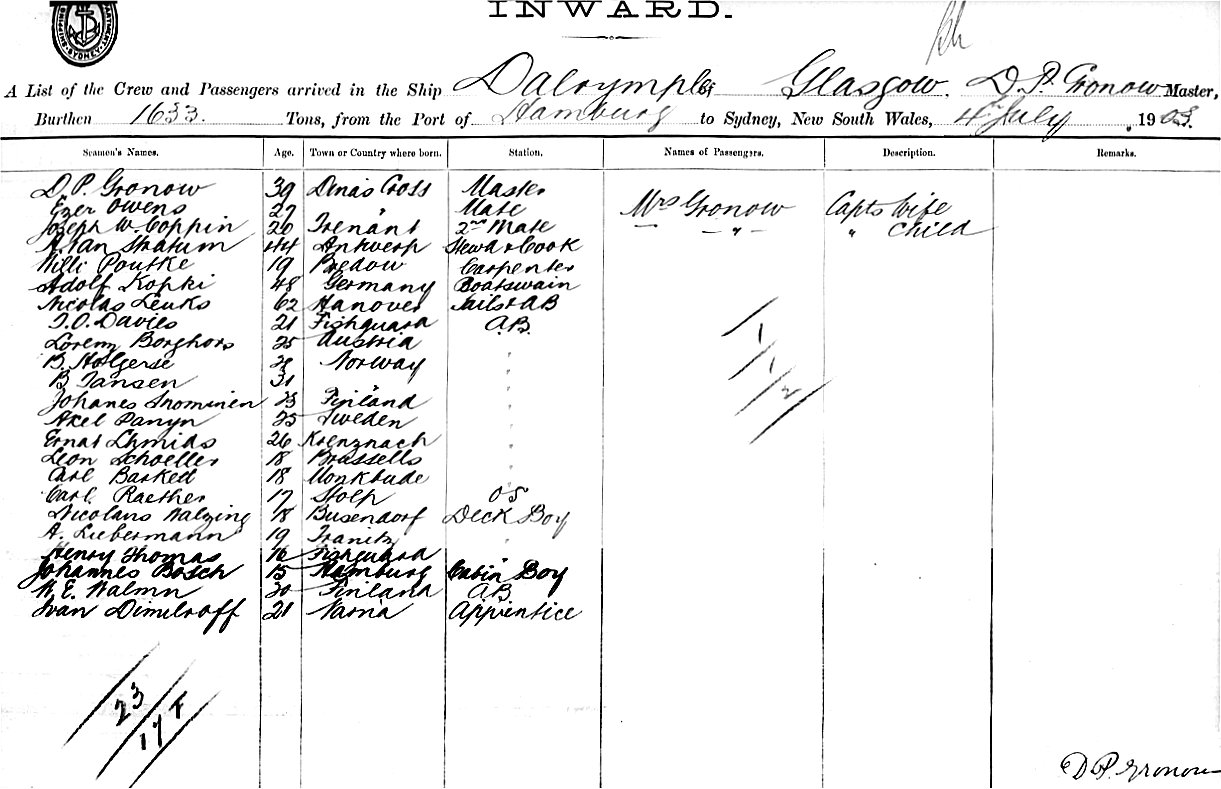 INWARD.
A List of the Crew and Passengers arrived in the Ship Dalrymple of Glasgow, D. P. Gronow Master,
Burthen 1633. Tons, from the Port of Hamburg to Sydney, New South Wales, 4th July 1903.
Seamen's Names. Age. Town or Country where born. Station. Names of Passengers. Description. Remarks.
D. P. Gronow 39 Dinas Cross Master
Ezer Owens 27 " Mate Mrs Gronow Capts Wife
Joseph W. Coppin 20 2nd Mate — - " - " Child
A. Van Stratum 44 Antwerp Stewd & Cook
Willi Poutke 19 Bredow Carpenter
Adolf Kopki 48 Germany Boatswain
Nicolas Leuks 62 Hanover Sails & AB
T. O. Davies 21 Fishguard A.B.
Lorenz Borghors 25 Austria "
B. Holgerse Norway "
B Jansen 31 " "
Johanes Snominen 23 Finland "
Axel Panyn 25 Sweden "
Ernst Schmids 26 Kreuznach "
Leon Schoeller 18 Brussells "
Carl Barkett 18 "
Carl Raether 17 Stolp OS
Nicolaus Walzing 18 Busendorf Deck Boy
A. Liebermann 19 "
Henry Thomas 16 Fishguard "
Johannes Bosch 15 Hamburg Cabin Boy
W. E. Walmn 20 Finland A.B.
Ivan Dimitroff 21 Varna Apprentice
1
1
2
23
17 F
D. P. Gronow